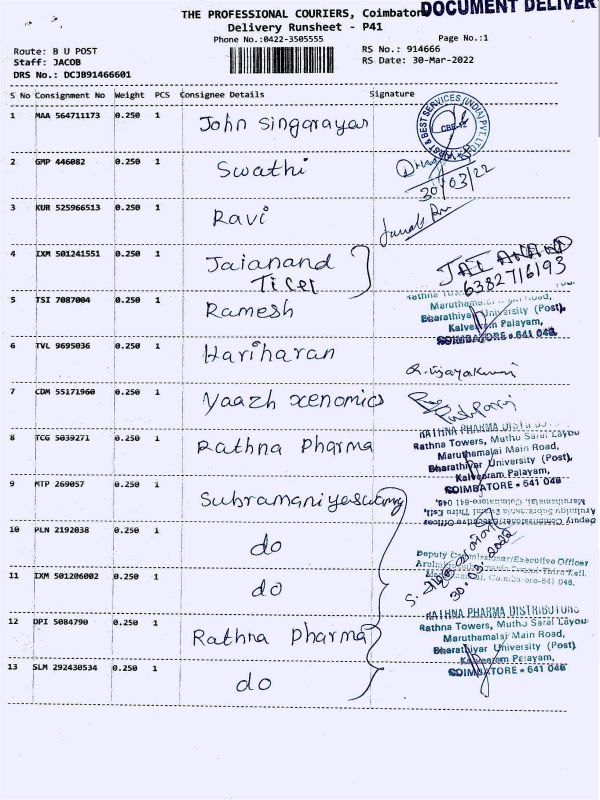 DOCUMENT DELIVER
THE PROFESSIONAL COURIERS, Coimbator
Delivery Runsheet - P41
Phone No.:0422-3505555 Page No.:1
Route: B U POST RS No.: 914666
Staff: JACOB RS Date: 30-Mar-2022
DRS No.: DCJB91466601
S No Consignment No Weight PCS Consignee Details Signature
1 MAA 564711173 0.250 1 John Singarayar
& BEST SERVICES (INDIA) PVT. LTD.
CBE-12
2 GMP 446082 0.250 1 Swathi
30/03/22
3 KUR 525966513 0.250 1 Ravi
4 IXM 501241551 0.250 1 Jaianand
Ticel
JAI ANAND
6382716193
5 TSI 7087004 0.250 1 Ramesh
Bharathiyar University (Post),
Kalveeram Palayam,
COIMBATORE - 641 046
6 TVL 9695036 0.250 1 Hariharan
R. Vijayakumar
7 CDM 55171960 0.250 1 Yaazh xenomics
8 TCG 5039271 0.250 1 Rathna Pharma
RATHNA PHARMA
Rathna Towers, Muthu Sarai Layou
Maruthamalai Main Road,
Bharathiyar University (Post),
Kalveeram Palayam,
COIMBATORE - 641 046
9 MTP 269057 0.250 1
Deputy Commissioner/Executive Officer
10 PLN 2192038 0.250 1 do
Deputy Commissioner/Executive Officer
11 IXM 501206002 0.250 1 do
30.03.2022
12 DPI 5084790 0.250 1 Rathna Pharma
RATHNA PHARMA DISTRIBUTORS
Rathna Towers, Muthu Sarai Layou
Maruthamalai Main Road,
Bharathiyar University (Post)
Kalveeram Palayam,
COIMBATORE - 641 046
13 SLM 292430534 0.250 1 do